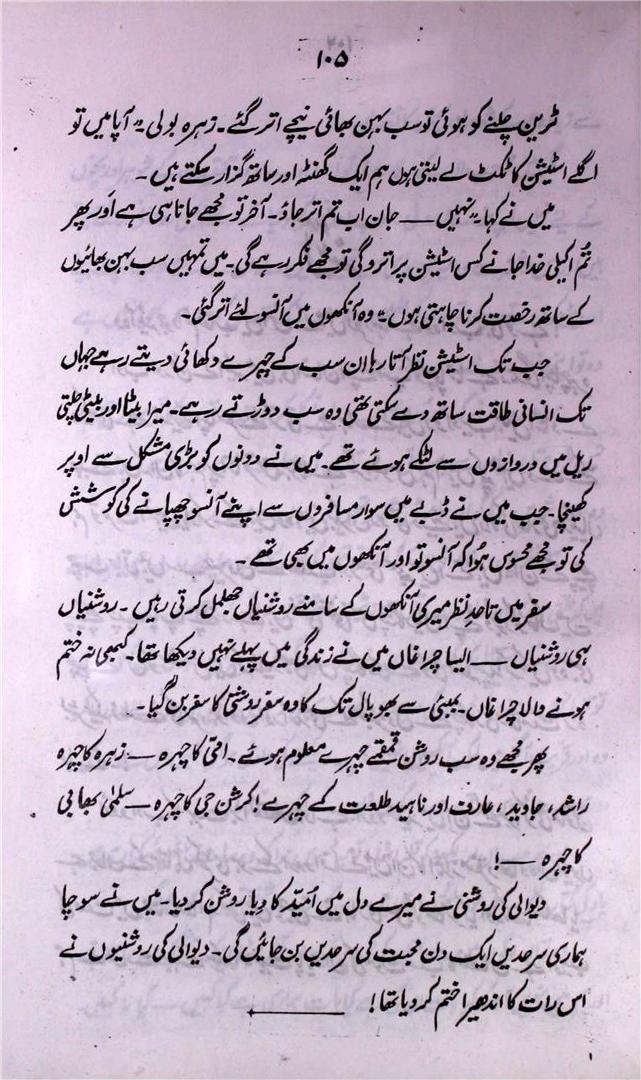 ۱۰۵
ٹرین چلنے کو ہوئی تو سب بہن بھائی نیچے اتر گئے۔ زہرہ بولی "آپا میں تو
اگلے اسٹیشن کا ٹکٹ لے لیتی ہوں ہم ایک گھنٹہ اور ساتھ گزار سکتے ہیں۔
میں نے کہا "نہیں —— جان اب تم اتر جاؤ۔ آخر تو مجھے جانا ہی ہے اور پھر
تُم اکیلی خدا جانے کس اسٹیشن پر اترو گی تو مجھے فکر رہے گی۔ میں تمہیں سب بہن بھائیوں
کے ساتھ رخصت کرنا چاہتی ہوں" وہ آنکھوں میں آنسو لئے اتر گئی۔
جب تک اسٹیشن نظر آتا رہا ان سب کے چہرے دکھائی دیتے رہے جہاں
تک انسانی طاقت ساتھ دے سکتی تھی وہ سب دوڑتے رہے۔ میرا بیٹا اور بیٹی چلتی
ریل میں دروازوں سے لٹکے ہوئے تھے۔ میں نے دونوں کو بڑی مشکل سے اوپر
کھینچا۔ جب میں نے ڈبے میں سوار مسافروں سے اپنے آنسو چھپانے کی کوشش
کی تو مجھے محسوس ہُوا کہ آنسو تو اور آنکھوں میں بھی تھے۔
سفر میں تاحدِ نظر میری آنکھوں کے سامنے روشنیاں جھلمل کرتی رہیں۔ روشنیاں
ہی روشنیاں —— ایسا چراغاں میں نے زندگی میں پہلے نہیں دیکھا تھا۔ کبھی نہ ختم
ہونے والا چراغاں۔ بمبئی سے بھوپال تک کا وہ سفر روشنی کا سفر بن گیا۔
پھر مجھے وہ سب روشن قمقمے چہرے معلوم ہوئے۔ امّی کا چہرہ — زہرہ کا چہرہ
راشد، جاوید، عارف اور ناہید طلعت کے چہرے! کرشن جی کا چہرہ — سلمٰی بھابی
کا چہرہ —!
دیوالی کی روشنی نے میرے دل میں اُمیّد کا دِیا روشن کر دیا۔ میں نے سوچا
ہماری سرحدیں ایک دن محبت کی سرحدیں بن جائیں گی۔ دیوالی کی روشنیوں نے
اس رات کا اندھیرا ختم کر دیا تھا!
۱